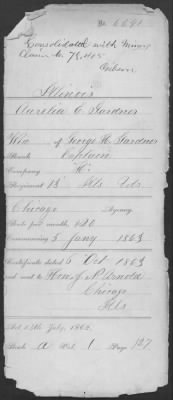 No. 6691
Consolidated with Minor
Claim No. 78,415
Illinois
Aurelia C. Gardner
Wid. of George H. Gardner
Rank Captain
Company H.
Regiment 13" Ills Vols.
Chicago Agency.
Rate per month, $20
Commencing 5 Jany 1863
Certificate dated 6 Oct 1863
and sent to Hon. J. N. Arnold
Chicago
Ills
Act 14th July, 1862.
Book A Vol. 1 Page 137